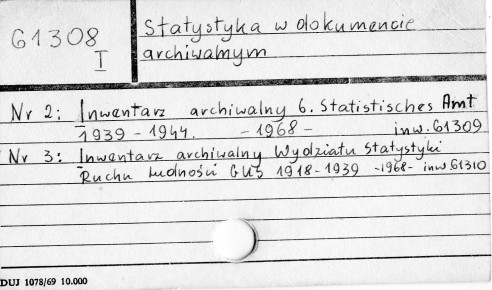 61308
I
Statystyka w dokumencie
archiwalnym
Nr 2: Inwentarz archiwalny 6. Statistisches Amt
1939 - 1944. - 1968 - inw. 61309
Nr 3: Inwentarz archiwalny Wydziału Statystyki
Ruchu Ludności GUS 1918-1939 -1968- inw. 61310
DUJ 1078/69 10.000